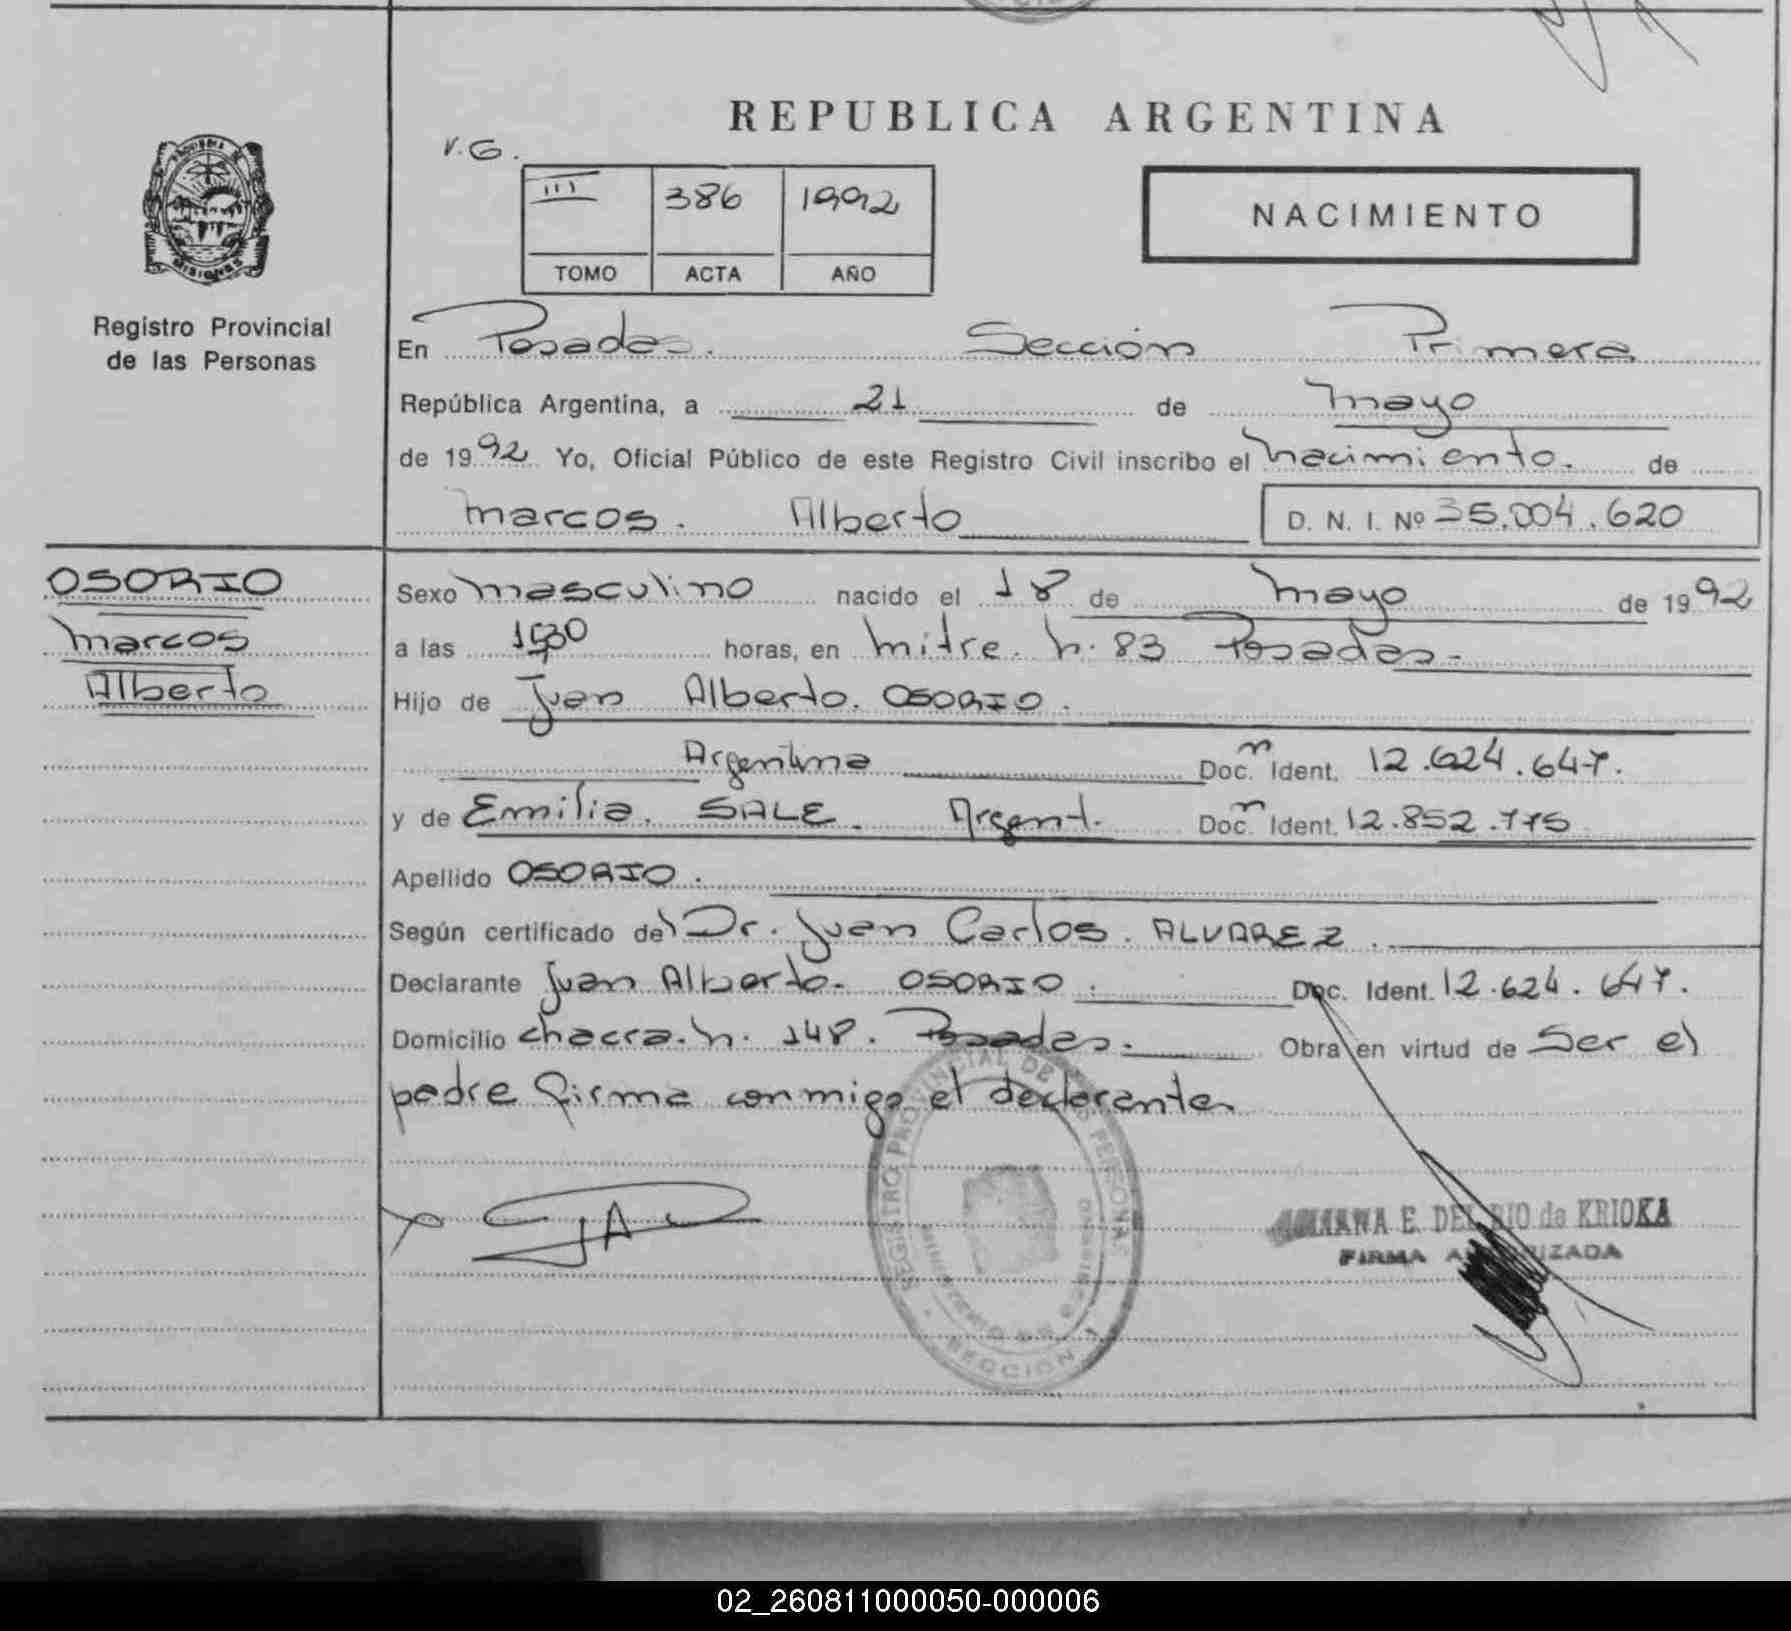 REPUBLICA ARGENTINA
V.G.
III 386 1992
TOMO ACTA AÑO
NACIMIENTO
MISIONES
Registro Provincial
de las Personas
En Posadas. Sección Primera
República Argentina, a 21 de mayo
de 1992 Yo, Oficial Público de este Registro Civil inscribo el nacimiento. de
marcos. Alberto D. N. I. Nº 35.004.620
OSORIO
marcos
Alberto
Sexo masculino nacido el 18 de mayo de 1992
a las horas, en mitre. n. 83 Posadas.
Hijo de Juan Alberto. OSORIO.
Argentina Doc. Ident. 12.624.647.
y de Emilia. SALE. Argent. Doc. Ident. 12.852.775
Apellido OSORIO.
Según certificado del Dr. Juan Carlos. ALVAREZ.
Declarante Juan Alberto. OSORIO. Doc. Ident. 12.624.647.
Domicilio chacra. n. 148. Posadas. Obra en virtud de Ser el
padre firma conmigo el declarante
REGISTRO PROVINCIAL DE LAS PERSONAS
SECCION 1
E. DEL RIO de KRIOKA
FIRMA AUTORIZADA
02_260811000050-000006